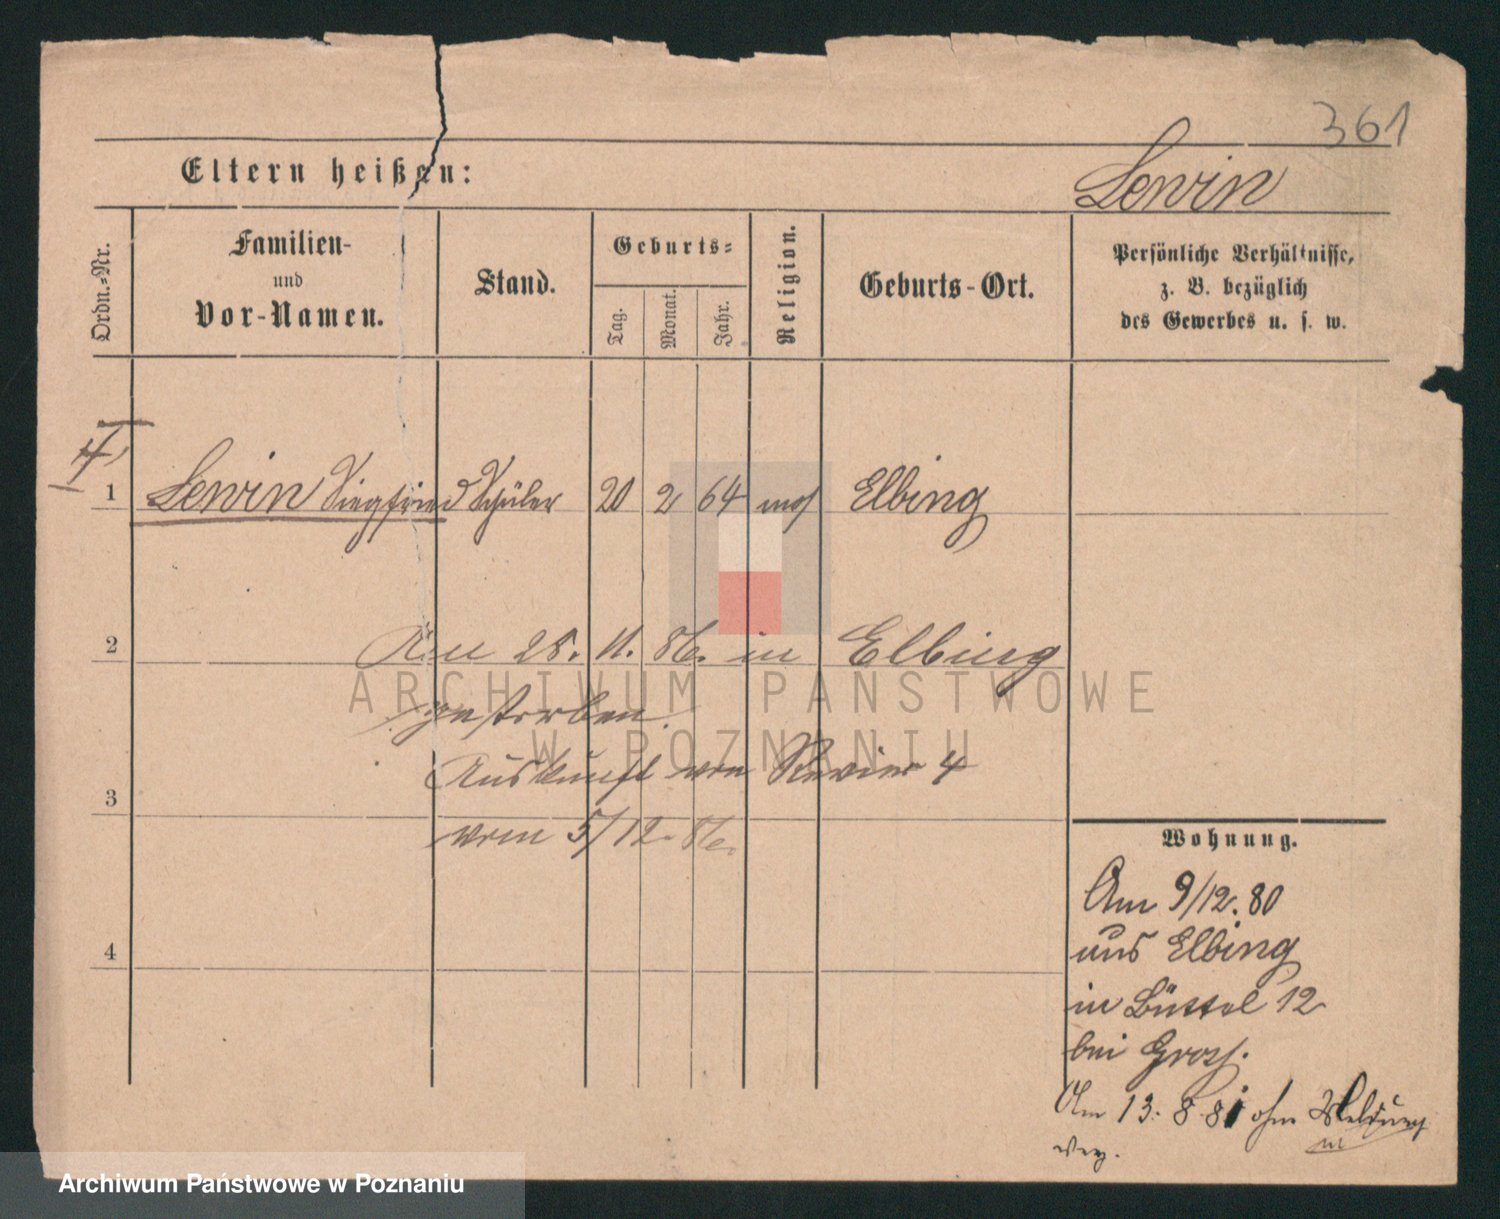 361
Eltern heißen:
Lewin
Ordn.-Nr.
Familien-
und
Vor-Namen.
Stand.
Geburts-
Tag.
Monat.
Jahr.
Religion.
Geburts-Ort.
Persönliche Verhältnisse,
z. B. bezüglich
des Gewerbes u. s. w.
1 Lewin Siegfried Schüler 20 2 64 mos Elbing
2 Am 28. 11. 86. in Elbing
gestorben.
Auskunft von Revier 4
3
vom 5/12. 86.
4
Wohnung.
Am 9/12. 80
aus Elbing
in Büttel 12
bei Gross.
Am 13. 8. 81 ohne Meldung
weg.
ARCHIWUM PAŃSTWOWE
W POZNANIU
Archiwum Państwowe w Poznaniu